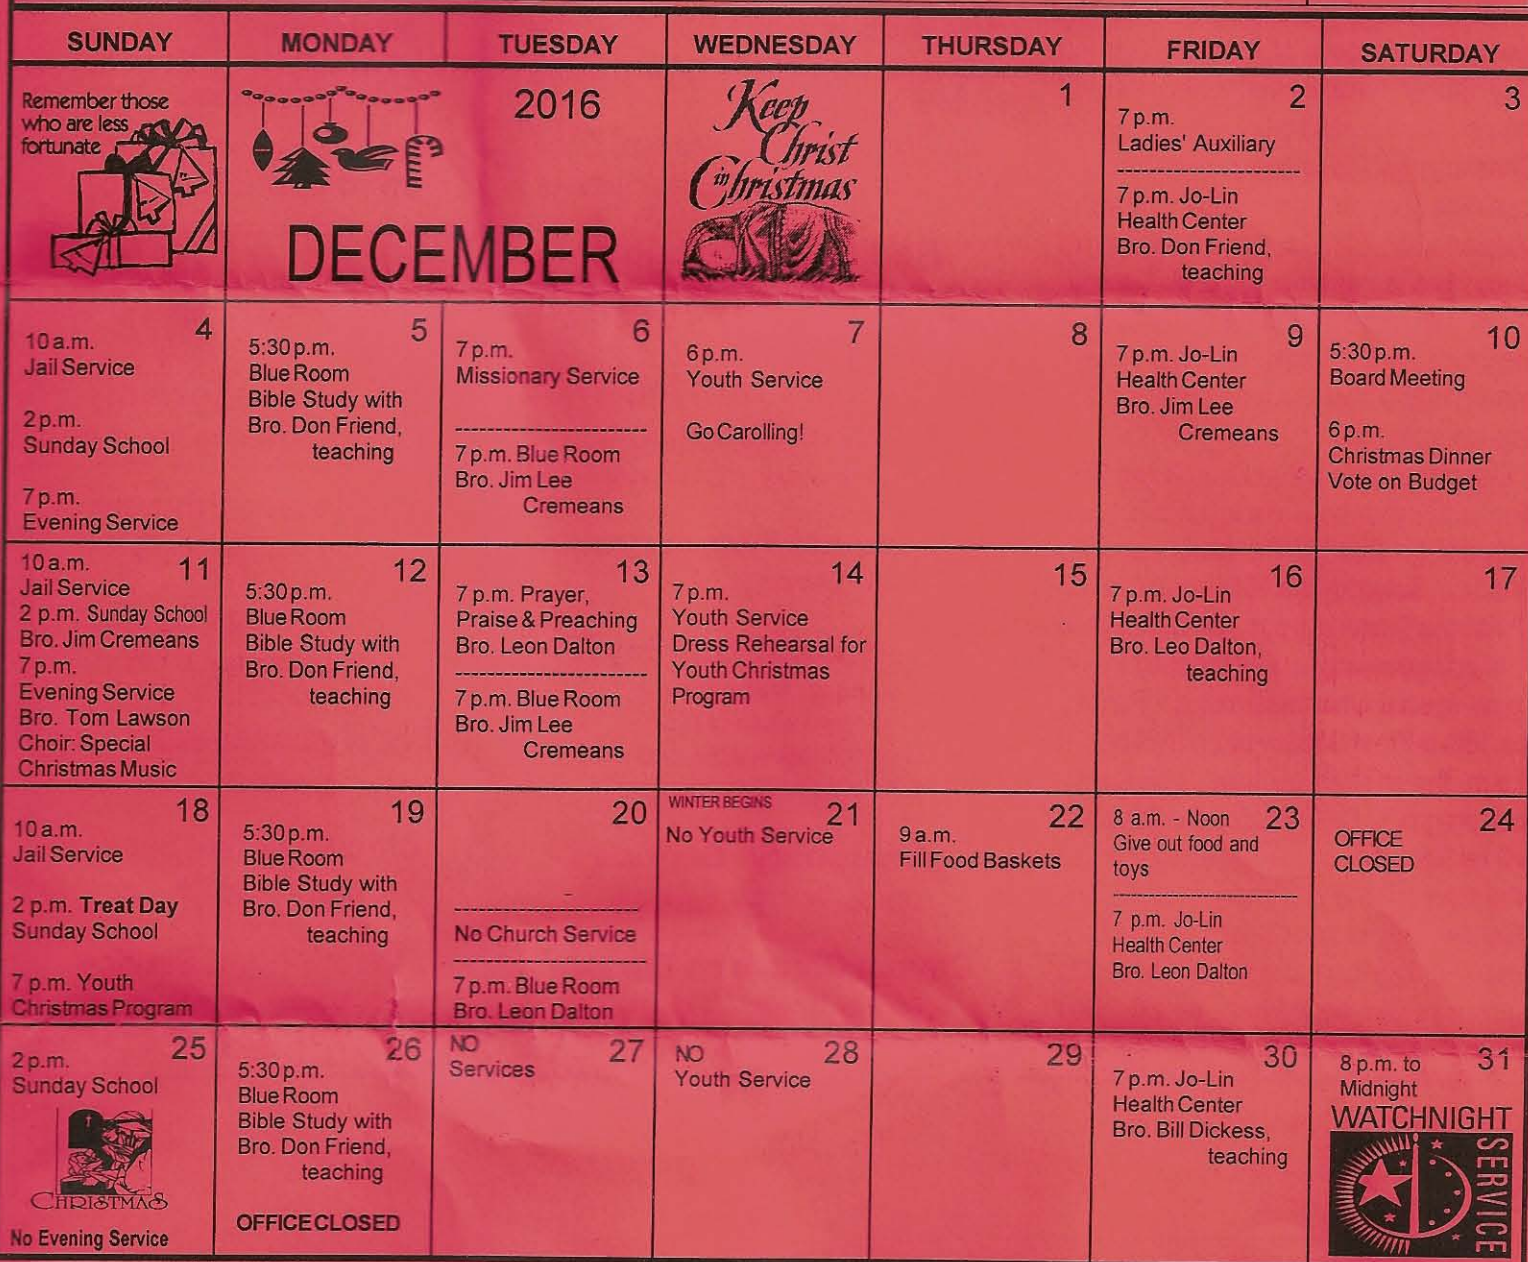 SUNDAY MONDAY TUESDAY WEDNESDAY THURSDAY FRIDAY SATURDAY
Remember those
who are less
fortunate
2016
DECEMBER
Keep
Christ
in
Christmas
1
2
7 p.m.
Ladies' Auxiliary
7 p.m. Jo-Lin
Health Center
Bro. Don Friend,
teaching
3
4
10 a.m.
Jail Service
2 p.m.
Sunday School
7 p.m.
Evening Service
5
5:30 p.m.
Blue Room
Bible Study with
Bro. Don Friend,
teaching
6
7 p.m.
Missionary Service
7 p.m. Blue Room
Bro. Jim Lee
Cremeans
7
6 p.m.
Youth Service
Go Carolling!
8
9
7 p.m. Jo-Lin
Health Center
Bro. Jim Lee
Cremeans
10
5:30 p.m.
Board Meeting
6 p.m.
Christmas Dinner
Vote on Budget
10 a.m. 11
Jail Service
2 p.m. Sunday School
Bro. Jim Cremeans
7 p.m.
Evening Service
Bro. Tom Lawson
Choir: Special
Christmas Music
12
5:30 p.m.
Blue Room
Bible Study with
Bro. Don Friend,
teaching
13
7 p.m. Prayer,
Praise & Preaching
Bro. Leon Dalton
7 p.m. Blue Room
Bro. Jim Lee
Cremeans
14
7 p.m.
Youth Service
Dress Rehearsal for
Youth Christmas
Program
15
16
7 p.m. Jo-Lin
Health Center
Bro. Leo Dalton,
teaching
17
18
10 a.m.
Jail Service
2 p.m. Treat Day
Sunday School
7 p.m. Youth
Christmas Program
19
5:30 p.m.
Blue Room
Bible Study with
Bro. Don Friend,
teaching
20
No Church Service
7 p.m. Blue Room
Bro. Leon Dalton
WINTER BEGINS
21
No Youth Service
22
9 a.m.
Fill Food Baskets
8 a.m. - Noon 23
Give out food and
toys
7 p.m. Jo-Lin
Health Center
Bro. Leon Dalton
24
OFFICE
CLOSED
25
2 p.m.
Sunday School
CHRISTMAS
No Evening Service
26
5:30 p.m.
Blue Room
Bible Study with
Bro. Don Friend,
teaching
OFFICE CLOSED
NO 27
Services
NO 28
Youth Service
29
30
7 p.m. Jo-Lin
Health Center
Bro. Bill Dickess,
teaching
8 p.m. to 31
Midnight
WATCHNIGHT
SERVICE